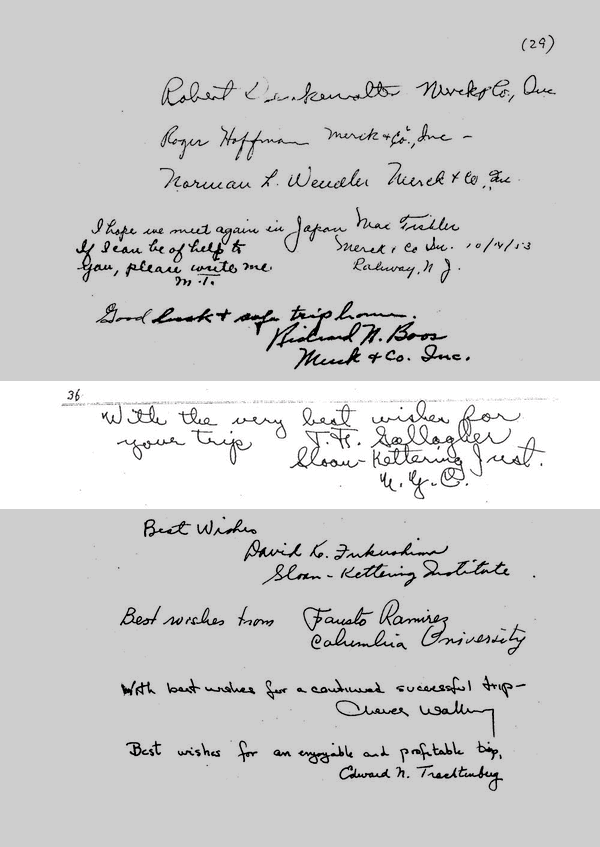 (29)
Robert Denkewalter Merck & Co., Inc
Roger Hoffman Merck & Co., Inc –
Norman L. Wendler Merck & Co., Inc.
I hope we meet again in Japan Max Tishler
If I can be of help to Merck & Co Inc. 10/14/53
you, please write me Rahway, N J.
M.T.
Good luck & safe trip home.
Richard H. Boos
Merck & Co. Inc.
36
With the very best wishes for
your trip T.F. Gallagher
Sloan-Kettering Inst.
N.Y.C.
Best Wishes
David K. Fukushima
Sloan-Kettering Institute
Best wishes from Fausto Ramirez
Columbia University
With best wishes for a continued successful trip–
Cheves Walling
Best wishes for an enjoyable and profitable trip,
Edward N. Trachtenberg